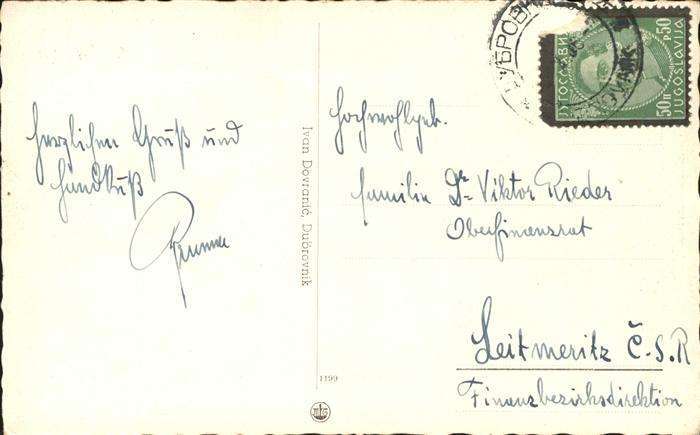 herzlichen Gruß und
Handkuß
Ivan Dovranić, Dubrovnik
1199
Hochwohlgeb.
Familie Dr. Viktor Rieder
Oberfinanzrat
Leitmeritz Č.S.R
Finanzbezirksdirektion
ЈУГОСЛАВИЈА
JUGOSLAVIJA
50п
p50